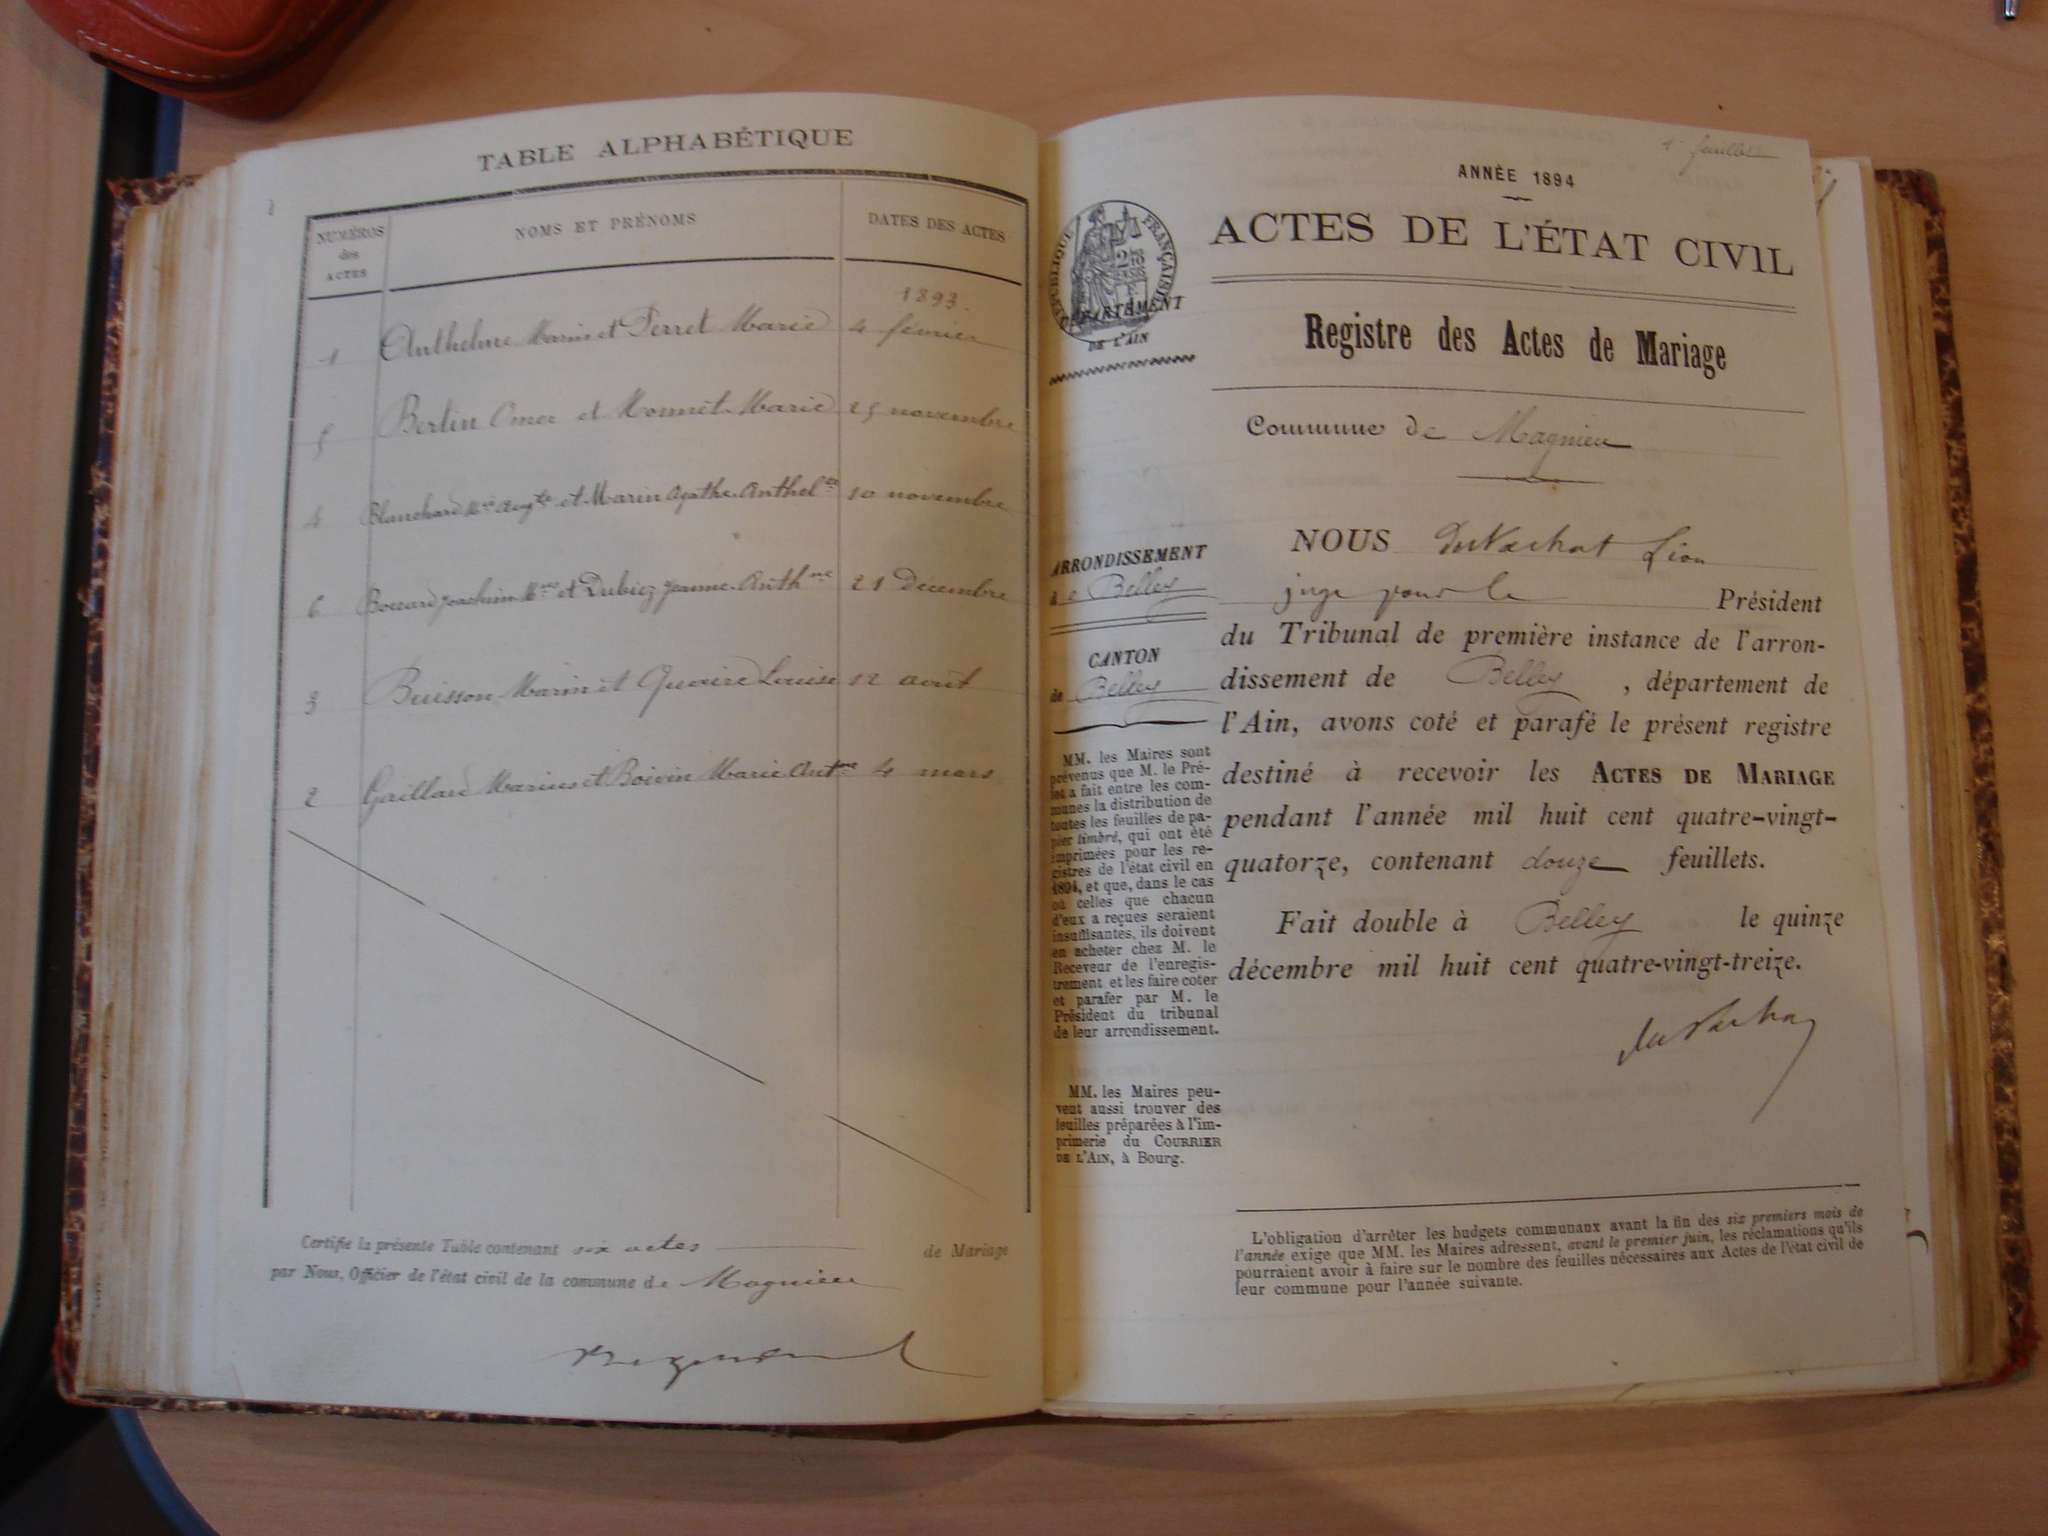 TABLE ALPHABÉTIQUE
NUMÉROS
des
ACTES
NOMS ET PRÉNOMS
DATES DES ACTES
1893.
1 Anthelme Marin et Perret Marie 4 février
5 Bertin Omer et Monnet Marie 25 novembre
4 Blanchard Augte et Marin Agathe Anthelme 10 novembre
6 Boccard Joachim Mius et Dubiez Jeanne Anthme 21 Décembre
3 Buisson Marin et Louise 12 août
2 Gaillard Marius et Boivin Marie Antme 4 mars
Certifié la présente Table contenant six actes de Mariage
par Nous, Officier de l'état civil de la commune de Magnieu
1er feuillet
ANNÉE 1894
ACTES DE L'ÉTAT CIVIL
RÉPUBLIQUE FRANÇAISE
DÉPARTEMENT
DE L'AIN
Registre des Actes de Mariage
Commune de Magnieu
ARRONDISSEMENT
de Belley
CANTON
de Belley
MM. les Maires sont
prévenus que M. le Pré-
fet a fait entre les com-
munes la distribution de
toutes les feuilles de pa-
pier timbré, qui ont été
imprimées pour les re-
gistres de l'état civil en
1894, et que, dans le cas
où celles que chacun
d'eux a reçues seraient
insuffisantes, ils doivent
en acheter chez M. le
Receveur de l'enregis-
trement et les faire coter
et parafer par M. le
Président du tribunal
de leur arrondissement.
MM. les Maires peu-
vent aussi trouver des
feuilles préparées à l'im-
primerie du COURRIER
DE L'AIN, à Bourg.
NOUS duVachat Léon
juge pour le Président
du Tribunal de première instance de l'arron-
dissement de Belley, département de
l'Ain, avons coté et parafé le présent registre
destiné à recevoir les ACTES DE MARIAGE
pendant l'année mil huit cent quatre-vingt-
quatorze, contenant douze feuillets.
Fait double à Belley le quinze
décembre mil huit cent quatre-vingt-treize.
duVachat
L'obligation d'arrêter les budgets communaux avant la fin des six premiers mois de
l'année exige que MM. les Maires adressent, avant le premier juin, les réclamations qu'ils
pourraient avoir à faire sur le nombre des feuilles nécessaires aux Actes de l'état civil de
leur commune pour l'année suivante.